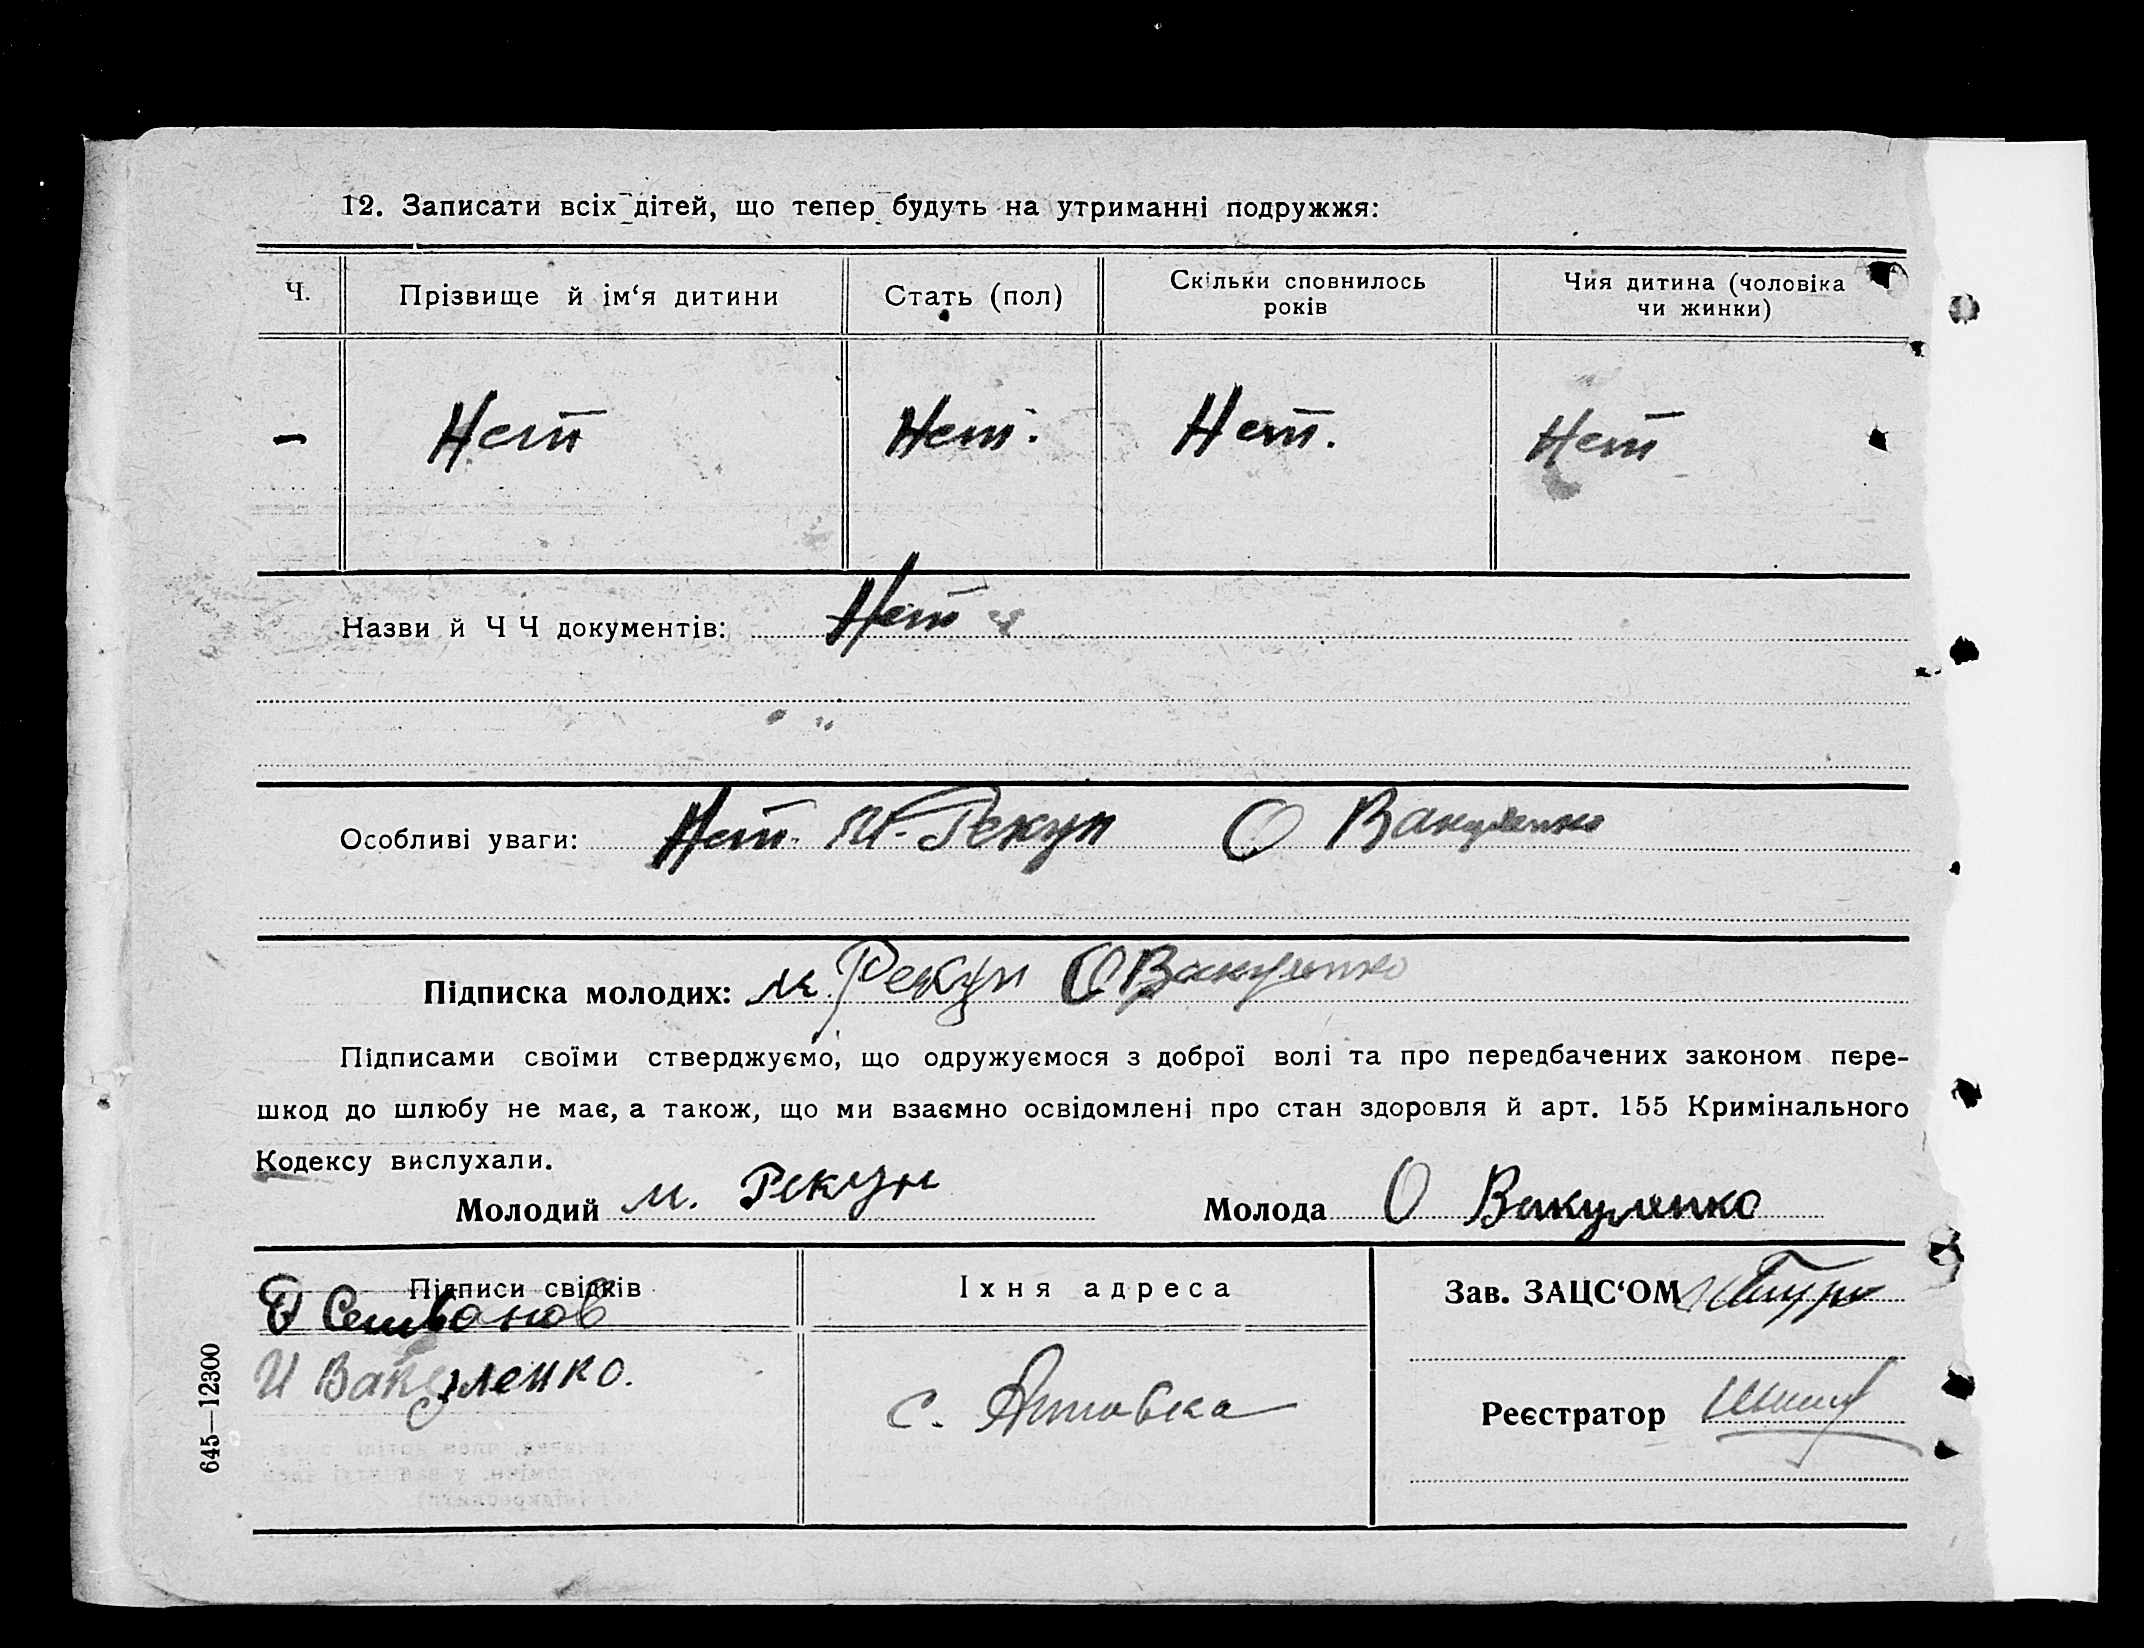 12. Записати всіх дітей, що тепер будуть на утриманні подружжя:
Ч. Прізвище й ім‘я дитини Стать (пол) Скільки сповнилось років Чия дитина (чоловіка чи жинки)
– Нет Нет. Нет. Нет
Назви й Ч Ч документів: Нет
Особливі уваги: Нет. М. Рекун О Вакуленко
Підписка молодих: М. Рекун О Вакуленко
Підписами своїми стверджуємо, що одружуємося з доброї волі та про передбачених законом пере-
шкод до шлюбу не має, а також, що ми взаємно освідомлені про стан здоровля й арт. 155 Кримінального
Кодексу вислухали.
Молодий М. Рекун Молода О Вакуленко
Підписи свідків Їхня адреса Зав. ЗАЦС‘ОМ
И Вакуленко.
с.
Реєстратор
645—12300